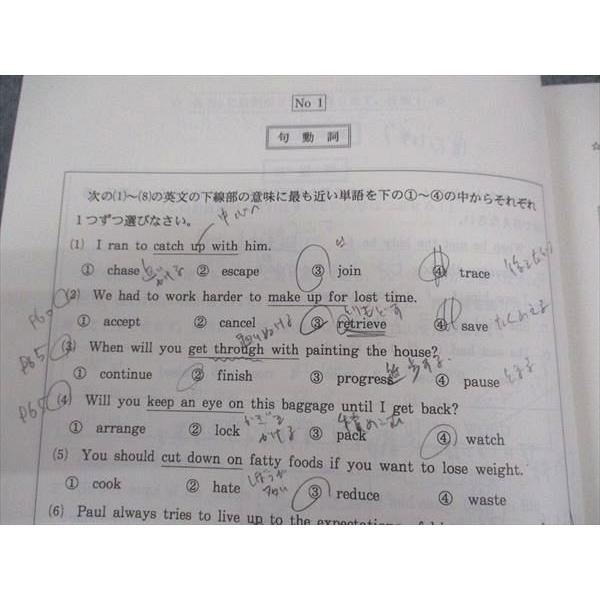 No 1
句動詞
次の(1)~(8)の英文の下線部の意味に最も近い単語を下の①~④の中からそれぞれ
1つずつ選びなさい。
(1) I ran to catch up with him.
① chase ② escape ③ join ④ trace
(2) We had to work harder to make up for lost time.
P60
① accept ② cancel ③ retrieve ④ save たくわえる
(3) When will you get through with painting the house?
P65
① continue ② finish ③ progress 進歩する ④ pause
(4) Will you keep an eye on this baggage until I get back?
P65
① arrange ② lock かぎを かける ③ pack ④ watch
(5) You should cut down on fatty foods if you want to lose weight.
① cook ② hate ③ reduce ④ waste
(6) Paul always tries to live up to the expectations of